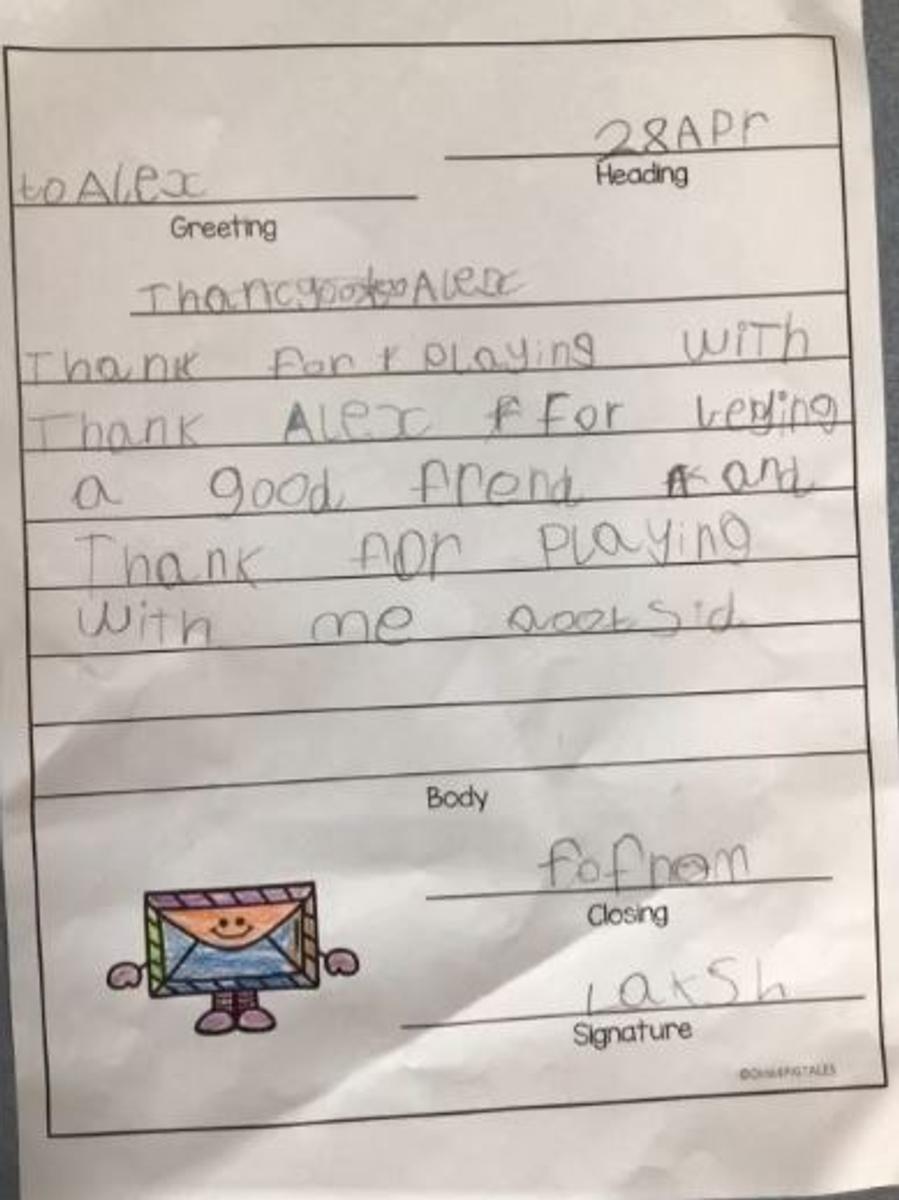 28APr
Heading
to Alex
Greeting
Thanc Alex
Thank For Playing With
Thank Alex F For beying
a good frend and
Thank for Playing
With me aootsid
Body
fofnom
Closing
LakSh
Signature